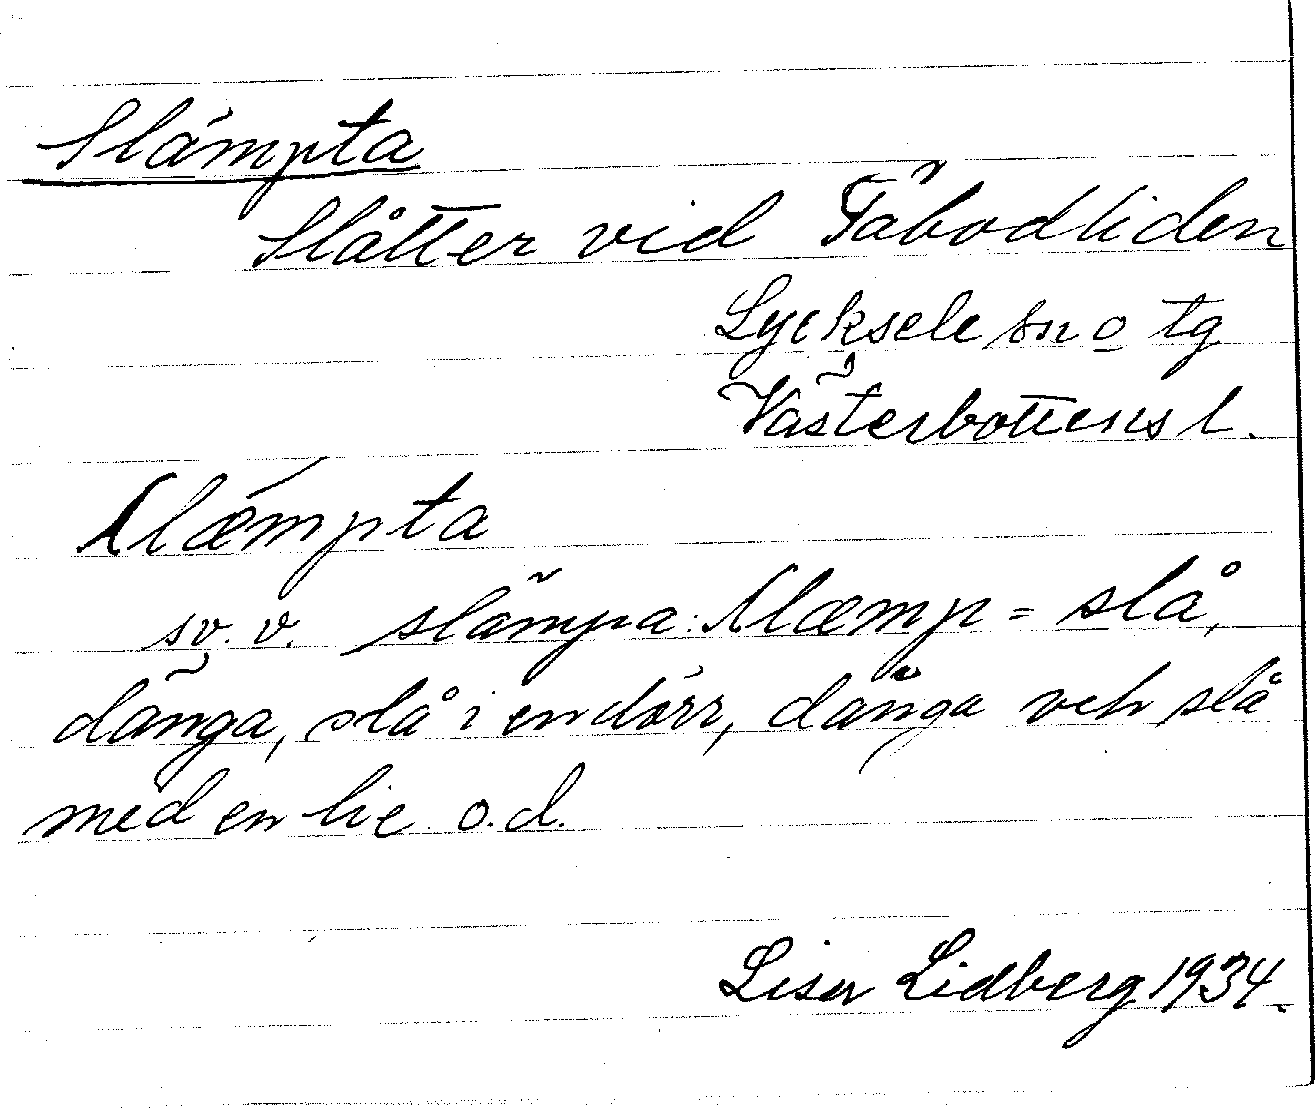 Slämpta
Slåtter vid Fäbodliden
Lycksele sn o tg
Västerbottens l.
Slæmpta
sv. v. slämpa: Slæmp = slå,
dänga, slå i en dörr, dänga och slå
med en lie o.d.
Lisa Lidberg 1934